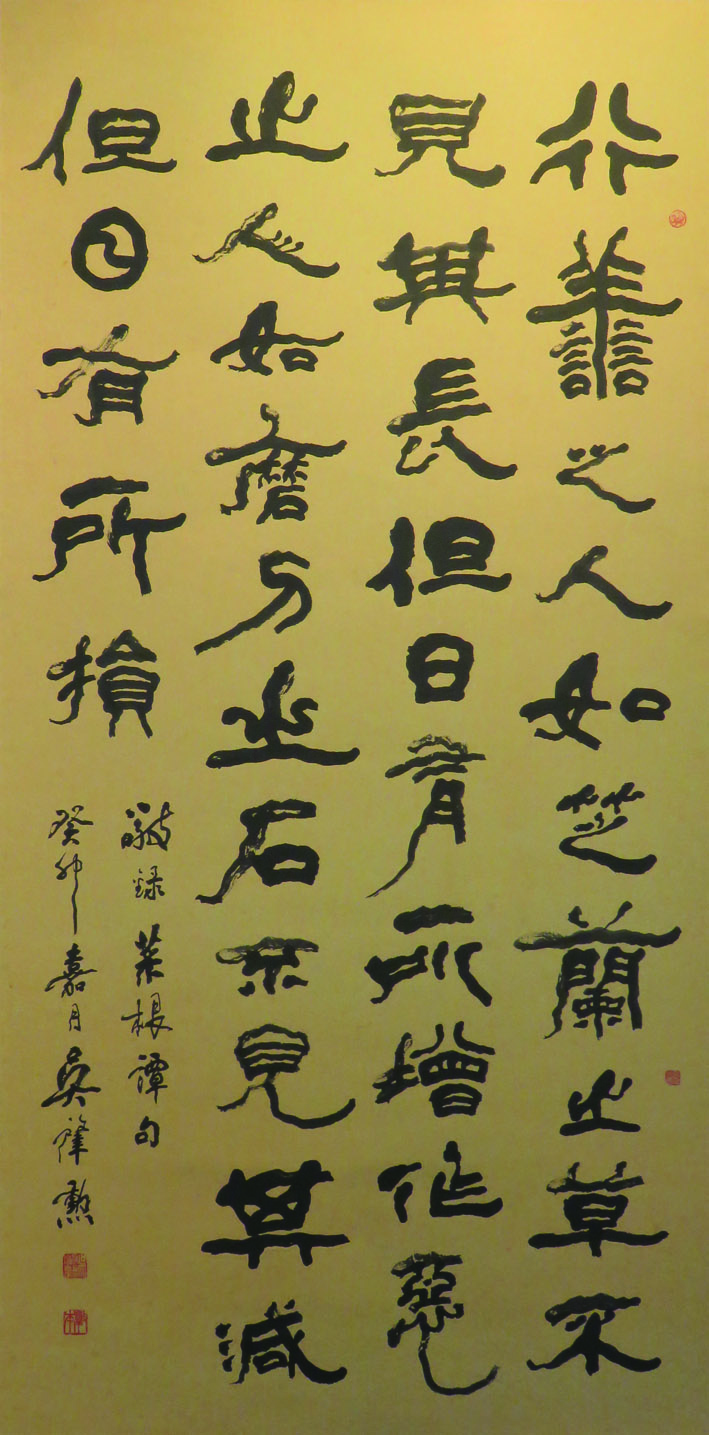 行善之人如芝蘭之草不
見其長但日有所增作惡
之人如磨刀之石不見其減
但日有所損
敬録菜根譚句
癸卯嘉月吳勳